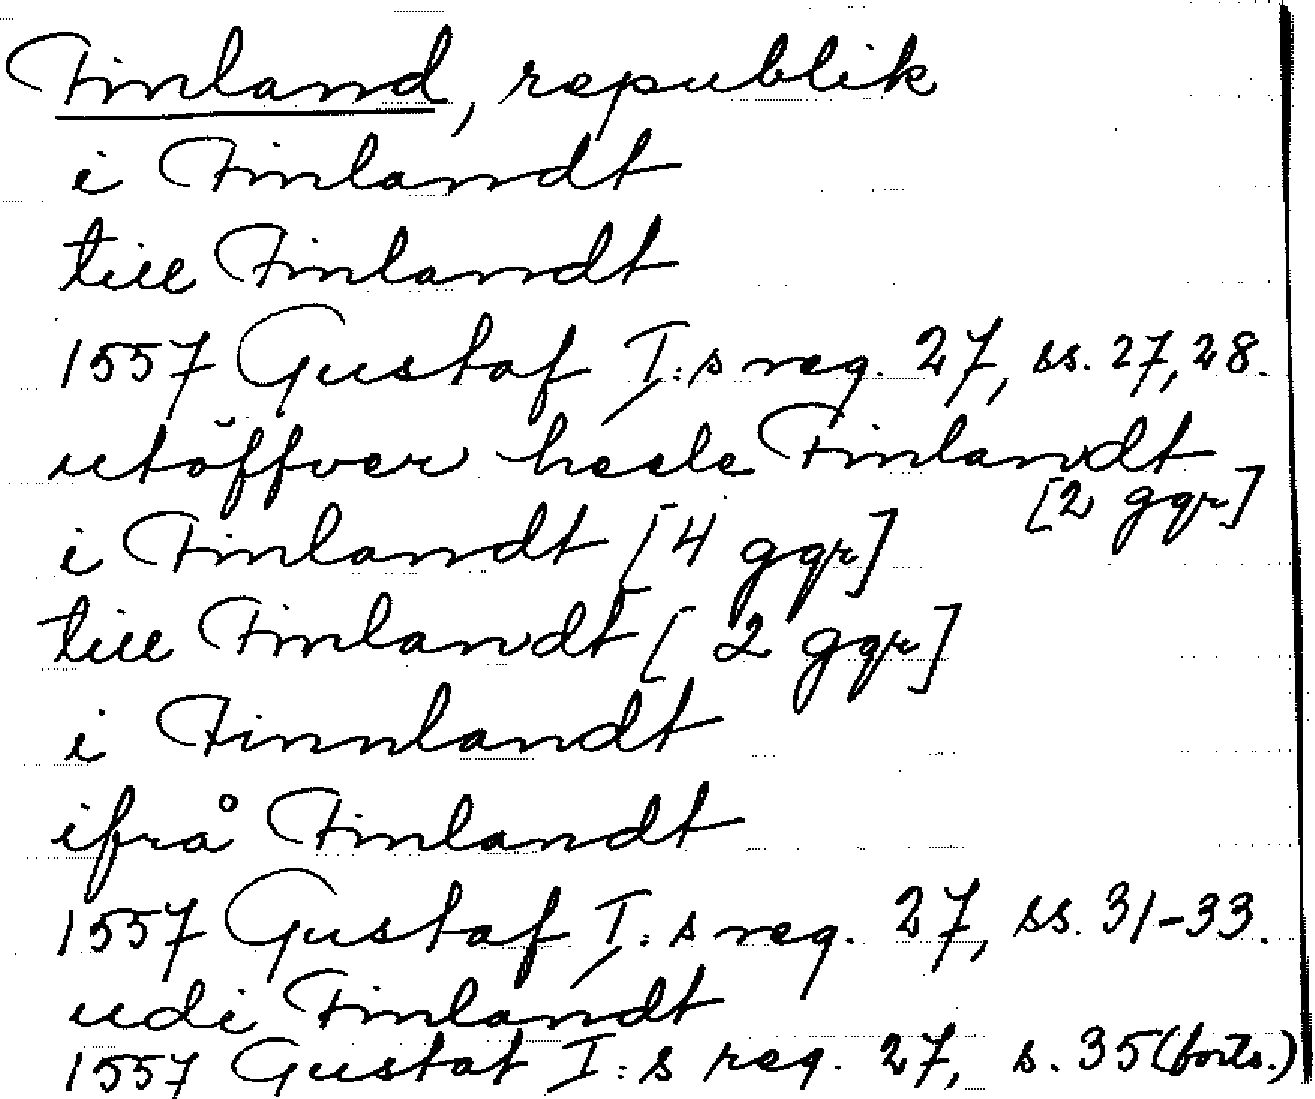 Finland, republik
i Finlandt
till Finlandt
1557 Gustaf I:s reg. 27, ss. 27, 28.
utöffver heele Finlandt
[2 ggr]
i Finlandt [4 ggr]
till Finlandt [2 ggr]
i Finnlandt
ifrå Finlandt
1557 Gustaf I:s reg. 27, ss. 31-33.
udi Finlandt
1557 Gustaf I:s reg. 27, s. 35 (forts.)